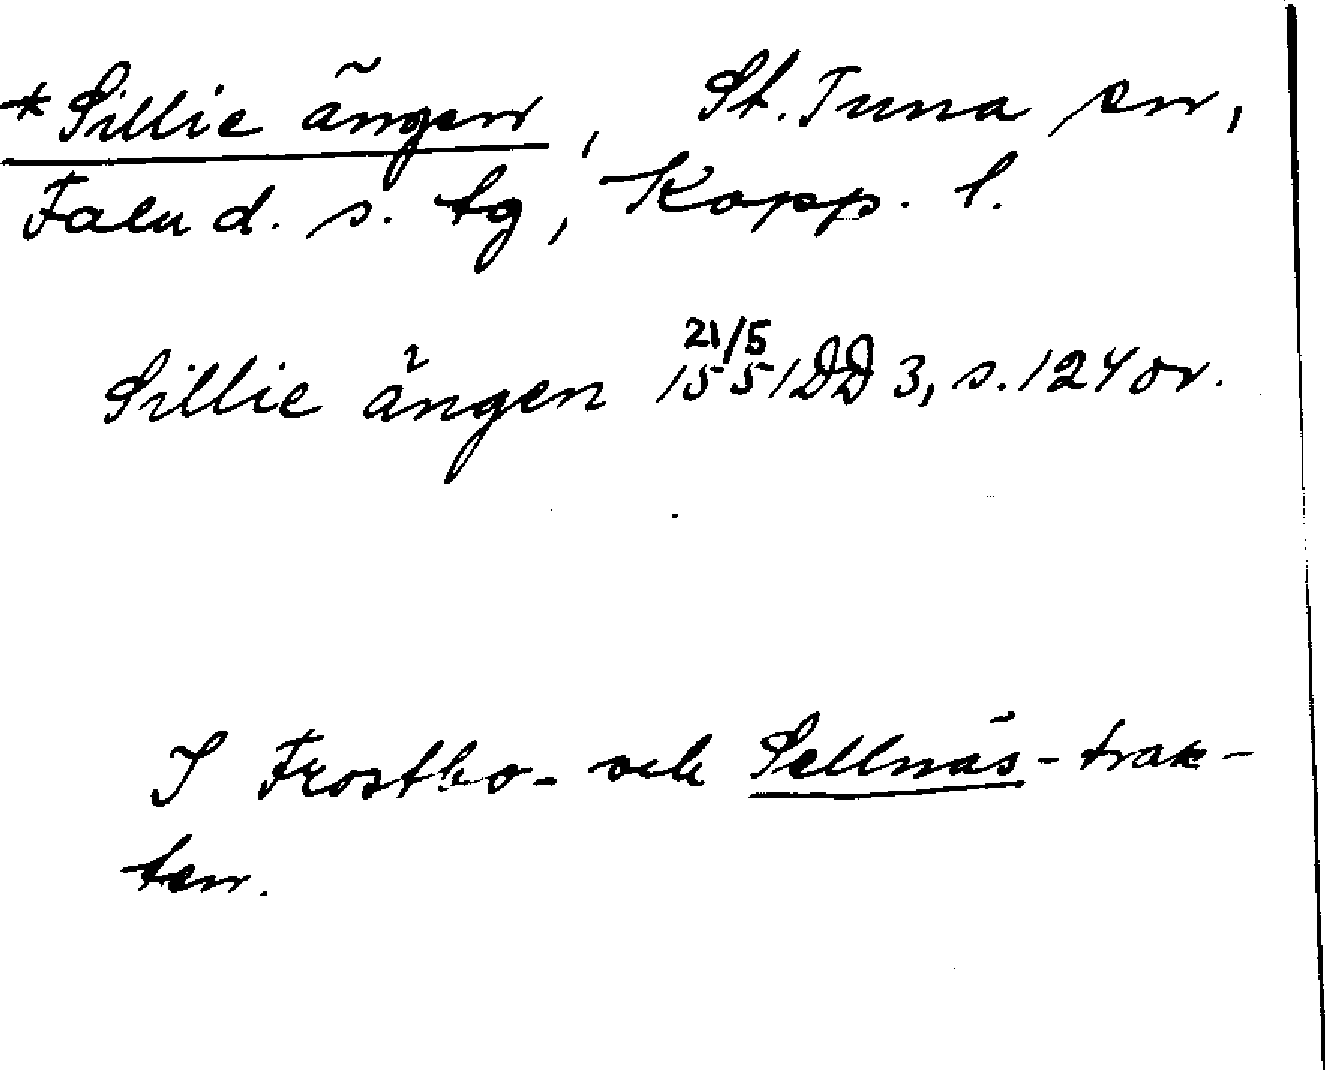 *Sillie ängen, St. Tuna sn,
Falu d. s. tg, Kopp. l.
Sillie ängen 21/5 1551 DD 3, s. 124 or.
I Frostbo- och Sellnäs-trak-
ten.